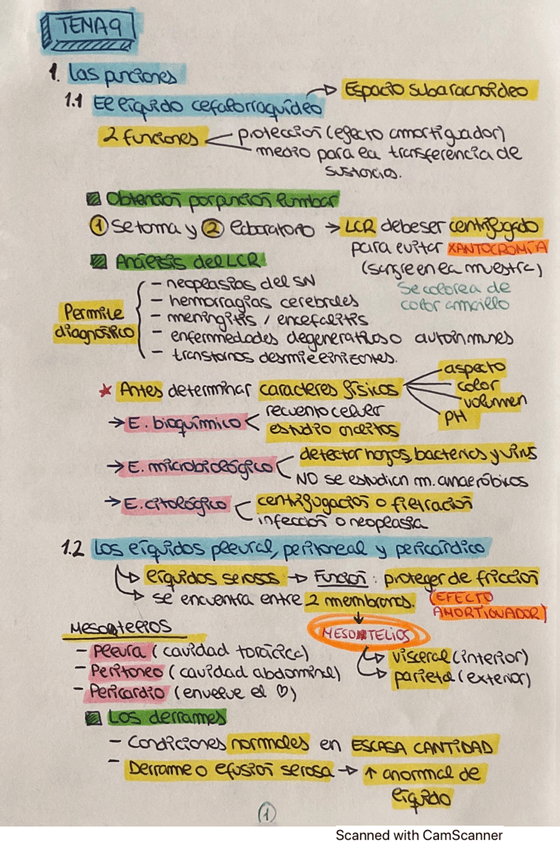 TEMA 9
1. Las punciones
→ Espacio subaracnoideo
1.1 El líquido cefalorraquídeo
2 funciones
protección (efecto amortiguador)
medio para la transferencia de
sustancias.
Obtención por punción lumbar
① Se toma y ② laboratorio → LCR debe ser centrifugado
para evitar XANTOCROMÍA
(sangre en la muestra)
Se colorea de
color amarillo
Análisis del LCR
Permite
diagnóstico
- neoplasias del SN
- hemorragias cerebrales
- meningitis / encefalitis
- enfermedades degenerativas o autoinmunes
- transtornos desmielinizantes.
★ Antes determinar caracteres físicos
aspecto
color
volumen
PH
→ E. bioquímico
recuento celular
estudio analitos
→ E. microbiológico
detectar hongos, bacterias y virus
NO se estudian m. anaeróbios
→ E. citológico
centrifugación o filtración
infección o neoplasia
1.2 Los líquidos pleural, peritoneal y pericárdico
→ líquidos serosos → Función: proteger de fricción
(EFECTO
AMORTIGUADOR)
→ se encuentra entre 2 membranas.
MESOTELIOS
→ visceral (interior)
→ parietal (exterior)
MESOTELIOS
- Pleura (cavidad torácica)
- Peritoneo (cavidad abdominal)
- Pericardio (envuelve el ♡)
Los derrames
- Condiciones normales en ESCASA CANTIDAD
- Derrame o efusión serosa → ↑ anormal de
líquido
①
Scanned with CamScanner